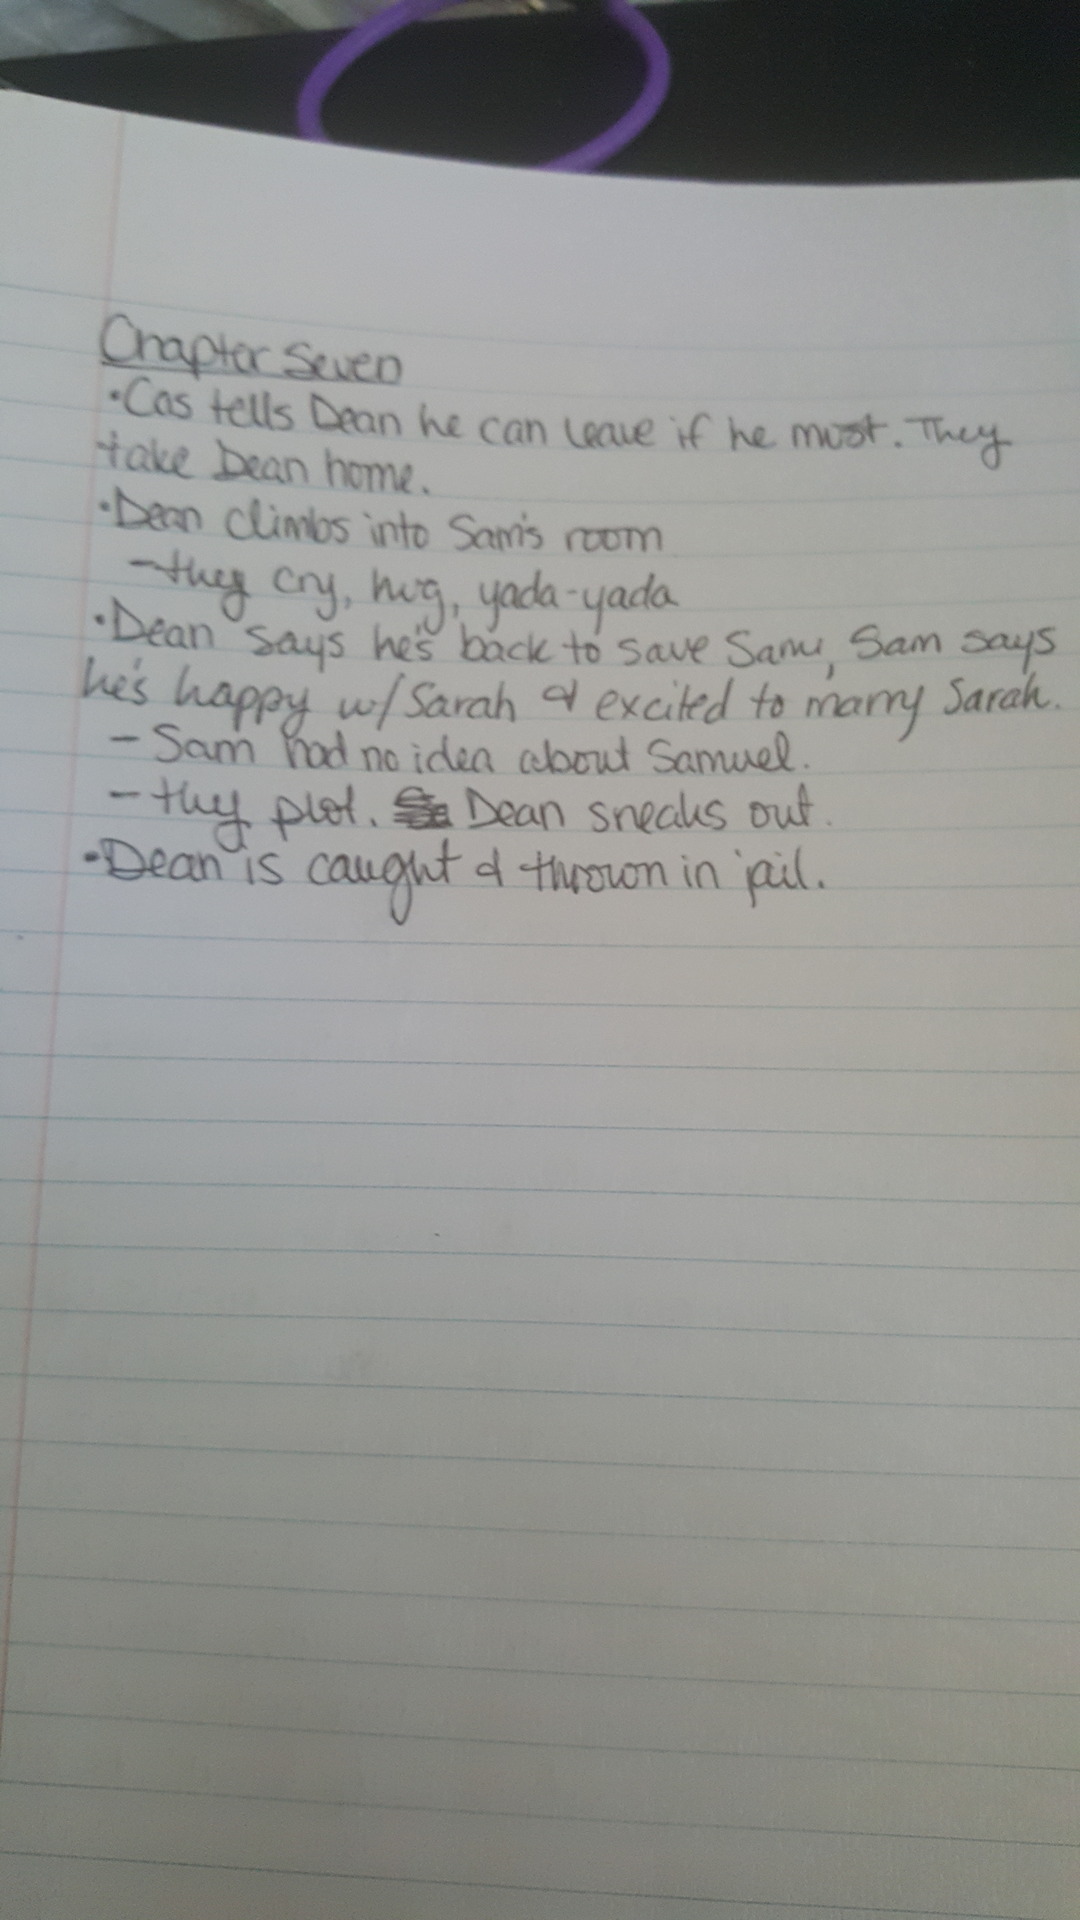 Chapter Seven
•Cas tells Dean he can leave if he must. They
take Dean home.
•Dean climbs into Sam's room
-they cry, hug, yada-yada
•Dean says he's back to save Sam, Sam says
he's happy w/ Sarah & excited to marry Sarah.
- Sam had no idea about Samuel.
- they plot. Dean sneaks out.
•Dean is caught & thrown in jail.